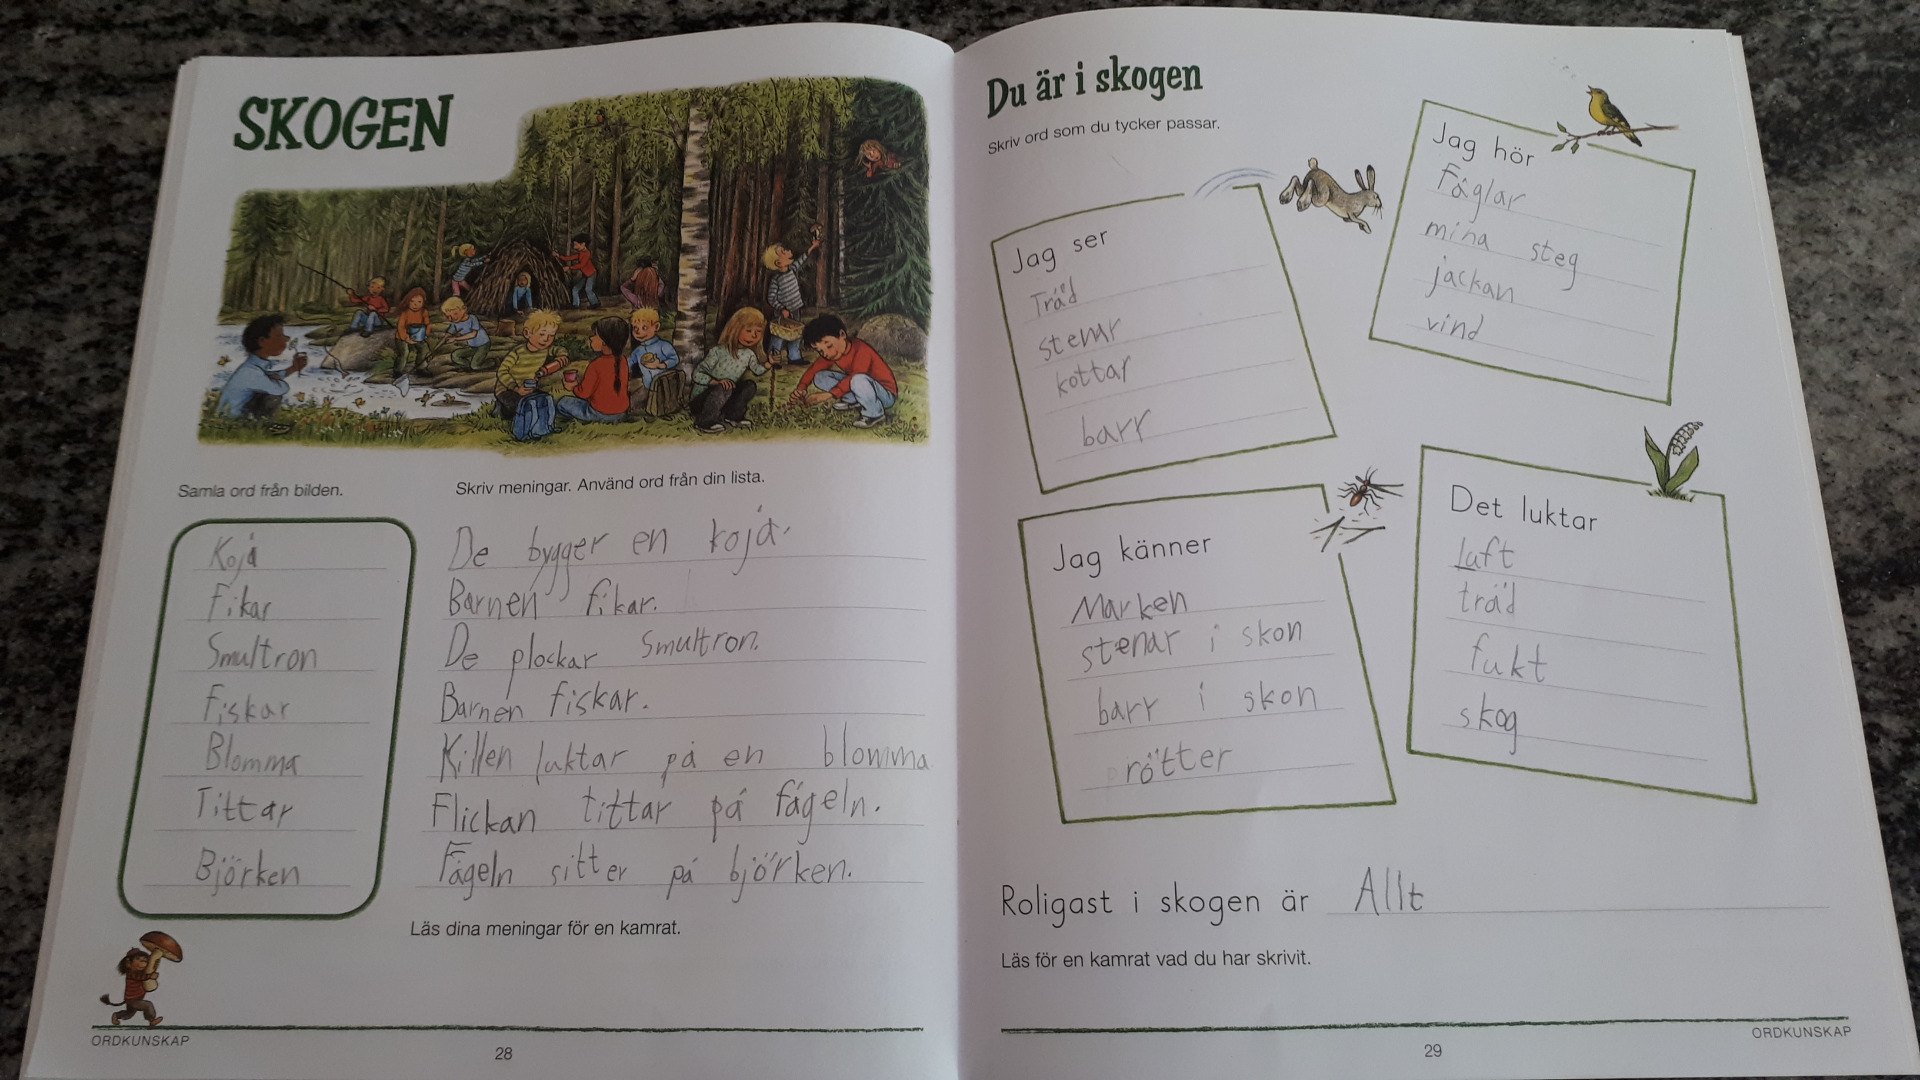 SKOGEN
Samla ord från bilden.
Koja
Fikar
Smultron
Fiskar
Blomma
Tittar
Björken
Skriv meningar. Använd ord från din lista.
De bygger en koja.
Barnen fikar.
De plockar Smultron.
Barnen fiskar.
Killen luktar på en blomma.
Flickan tittar på fågeln.
Fågeln sitter på björken.
Läs dina meningar för en kamrat.
ORDKUNSKAP
28
Du är i skogen
Skriv ord som du tycker passar.
Jag ser
Träd
stenar
kottar
barr
Jag hör
Fåglar
mina steg
jackan
vind
Jag känner
Marken
stenar i skon
barr i skon
rötter
Det luktar
luft
träd
fukt
skog
Roligast i skogen är Allt
Läs för en kamrat vad du har skrivit.
ORDKUNSKAP
29